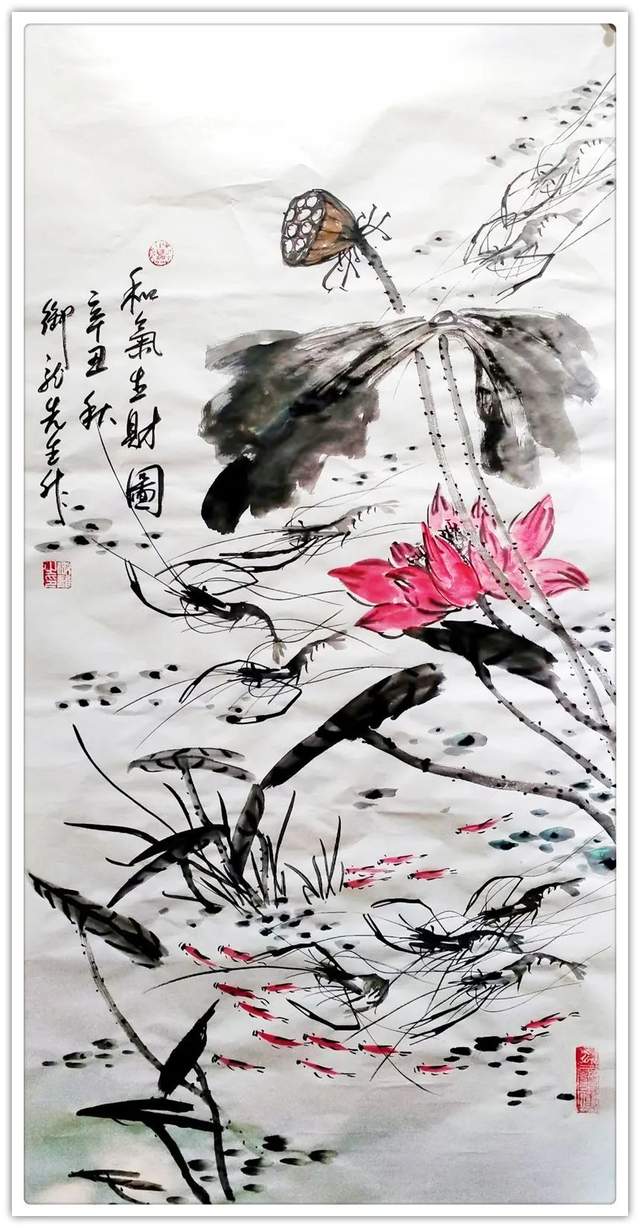 和氣生財圖
辛丑秋
御龙先生作